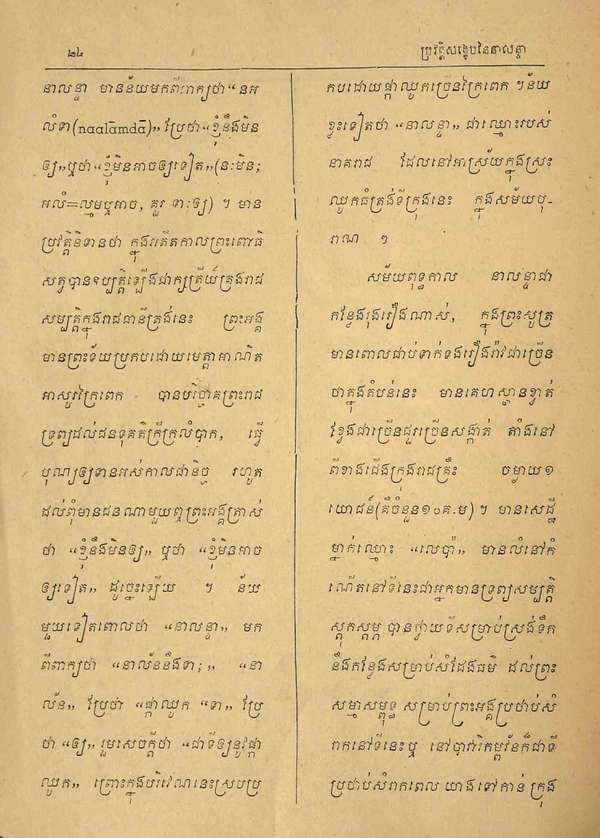 ២៤
ប្រវត្តិសង្ខេបនៃនាលន្ទា
នាលន្ទា មានន័យមកពីពាក្យថា “នអ
លំទា(naalāmdā)» ប្រែថា “ខ្ញុំនឹងមិន
ឲ្យ» ឬថា “ខ្ញុំមិនអាចឲ្យទៀត» (ន:មិន;
អលំ=ល្មមឬអាច, គួរ ទា:ឲ្យ) ។ មាន
ប្រវត្តិនិទានថា ក្នុងអតីតកាលព្រះពោធិ
សត្វបានឧប្បត្តិឡើងជាក្សត្រីយ៍គ្រងរាជ
សម្បត្តិក្នុងរាជធានីត្រង់នេះ ព្រះអង្គ
មានព្រះទ័យប្រកបដោយមេត្តាអាណិត
អាសូរក្រៃពេក បានបរិច្ចាគព្រះរាជ
ទ្រព្យដល់ជនទុគតិក្រីក្រលំបាក, ធ្វើ
បុណ្យឲ្យទានអស់កាលជានិច្ច រហូត
ដល់ពុំមានជនណាមួយឮព្រះអង្គត្រាស់
ថា “ខ្ញុំនឹងមិនឲ្យ» ឬថា “ខ្ញុំមិនអាច
ឲ្យទៀត» ដូច្នេះឡើយ ។ ន័យ
មួយទៀតពោលថា “នាលន្ទា» មក
ពីពាក្យថា “នាល័ននឹងទា; » “នា
ល័ន» ប្រែថា “ផ្កាឈូក “ទា» ប្រែ
ថា “ឲ្យ» រួមសេចក្តីថា “ជាទីឲ្យនូវផ្កា
ឈូក» ព្រោះក្នុងបរិវេណនេះស្របប្រ
កបដោយផ្កាឈូកច្រើនក្រៃពេក ។ ន័យ
ខ្លះទៀតថា “នាលន្ទា» ជាឈ្មោះរបស់
នាគរាជ ដែលនៅអាស្រ័យក្នុងស្រះ
ឈូកធំត្រង់ទីក្រុងនេះ ក្នុងសម័យបុ-
រាណ ។
សម័យពុទ្ធកាល នាលន្ទាជា
កន្លែងរុងរឿងណាស់, ក្នុងព្រះសូត្រ
មានពោលជាប់ទាក់ទងរឿងរ៉ាវជាច្រើន
ថាក្នុងតំបន់នេះ មានគេហស្ថានខ្វាត់
ខ្វែងជាច្រើនជួរច្រើនសង្កាត់ តាំងនៅ
ពីខាងជើងក្រុងរាជគ្រឹះ ចម្ងាយ១
យោជន៍(គឺចំនួន១០គ.ម) ។ មានសេដ្ឋី
ម្នាក់ឈ្មោះ “លេប៉ា» មានលំនៅកំ
ណើតនៅទីនេះជាអ្នកមានទ្រព្យសម្បត្តិ
ស្តុកស្តម្ភ បានថ្វាយទីសម្រាប់ស្រង់ទឹក
និងកន្លែងសម្រាប់សំដែងធម៌ ដល់ព្រះ
សម្មាសម្ពុទ្ធ សម្រាប់ព្រះអង្គប្រថាប់សំ
រាកនៅទីនេះឬ នៅបាវារិកម្ពវ័នក៏ជាទី
ប្រថាប់សំរាកពេល យាងទៅកាន់ ក្រុង